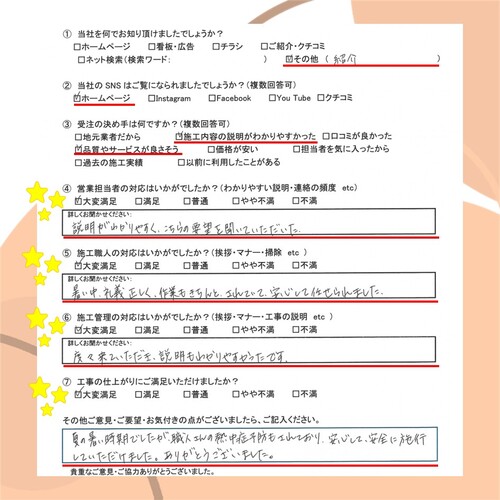 ① 当社を何でお知り頂けましたでしょうか?
☐ホームページ ☐看板・広告 ☐チラシ ☐ご紹介・クチコミ
☐ネット検索(検索ワード: ) ☑その他 ( 紹介 )
② 当社の SNS はご覧になられましたでしょうか?(複数回答可)
☑ホームページ ☐Instagram ☐Facebook ☐You Tube ☐クチコミ
③ 受注の決め手は何ですか?(複数回答可)
☐地元業者だから ☑施工内容の説明がわかりやすかった ☐口コミが良かった
☑品質やサービスが良さそう ☐価格が安い ☐担当者を気に入ったから
☐過去の施工実績 ☐以前に利用したことがある
④ 営業担当者の対応はいかがでしたか?(わかりやすい説明・連絡の頻度 etc)
☑大変満足 ☐満足 ☐普通 ☐やや不満 ☐不満
詳しくお聞かせください:
説明がわかりやすく、こちらの要望を聞いていただいた。
⑤ 施工職人の対応はいかがでしたか?(挨拶・マナー・掃除 etc )
☑大変満足 ☐満足 ☐普通 ☐やや不満 ☐不満
詳しくお聞かせください:
暑い中、礼義正しく、作業もきちんと、されていて、安心して任せられました。
⑥ 施工管理の対応はいかがでしたか?(挨拶・マナー・工事の説明 etc )
☑大変満足 ☐満足 ☐普通 ☐やや不満 ☐不満
詳しくお聞かせください:
度々来ていただき、説明もわかりやすかったです。
⑦ 工事の仕上がりにご満足いただけましたか?
☑大変満足 ☐満足 ☐普通 ☐やや不満 ☐不満
その他ご意見・ご要望・お気付きの点がございましたら、ご記入ください。
夏の暑い時期でしたが、職人さんの熱中症予防もされており、安心して、安全に施行
していただけました。ありがとうございました。
貴重なご意見・ご協力ありがとうございました。